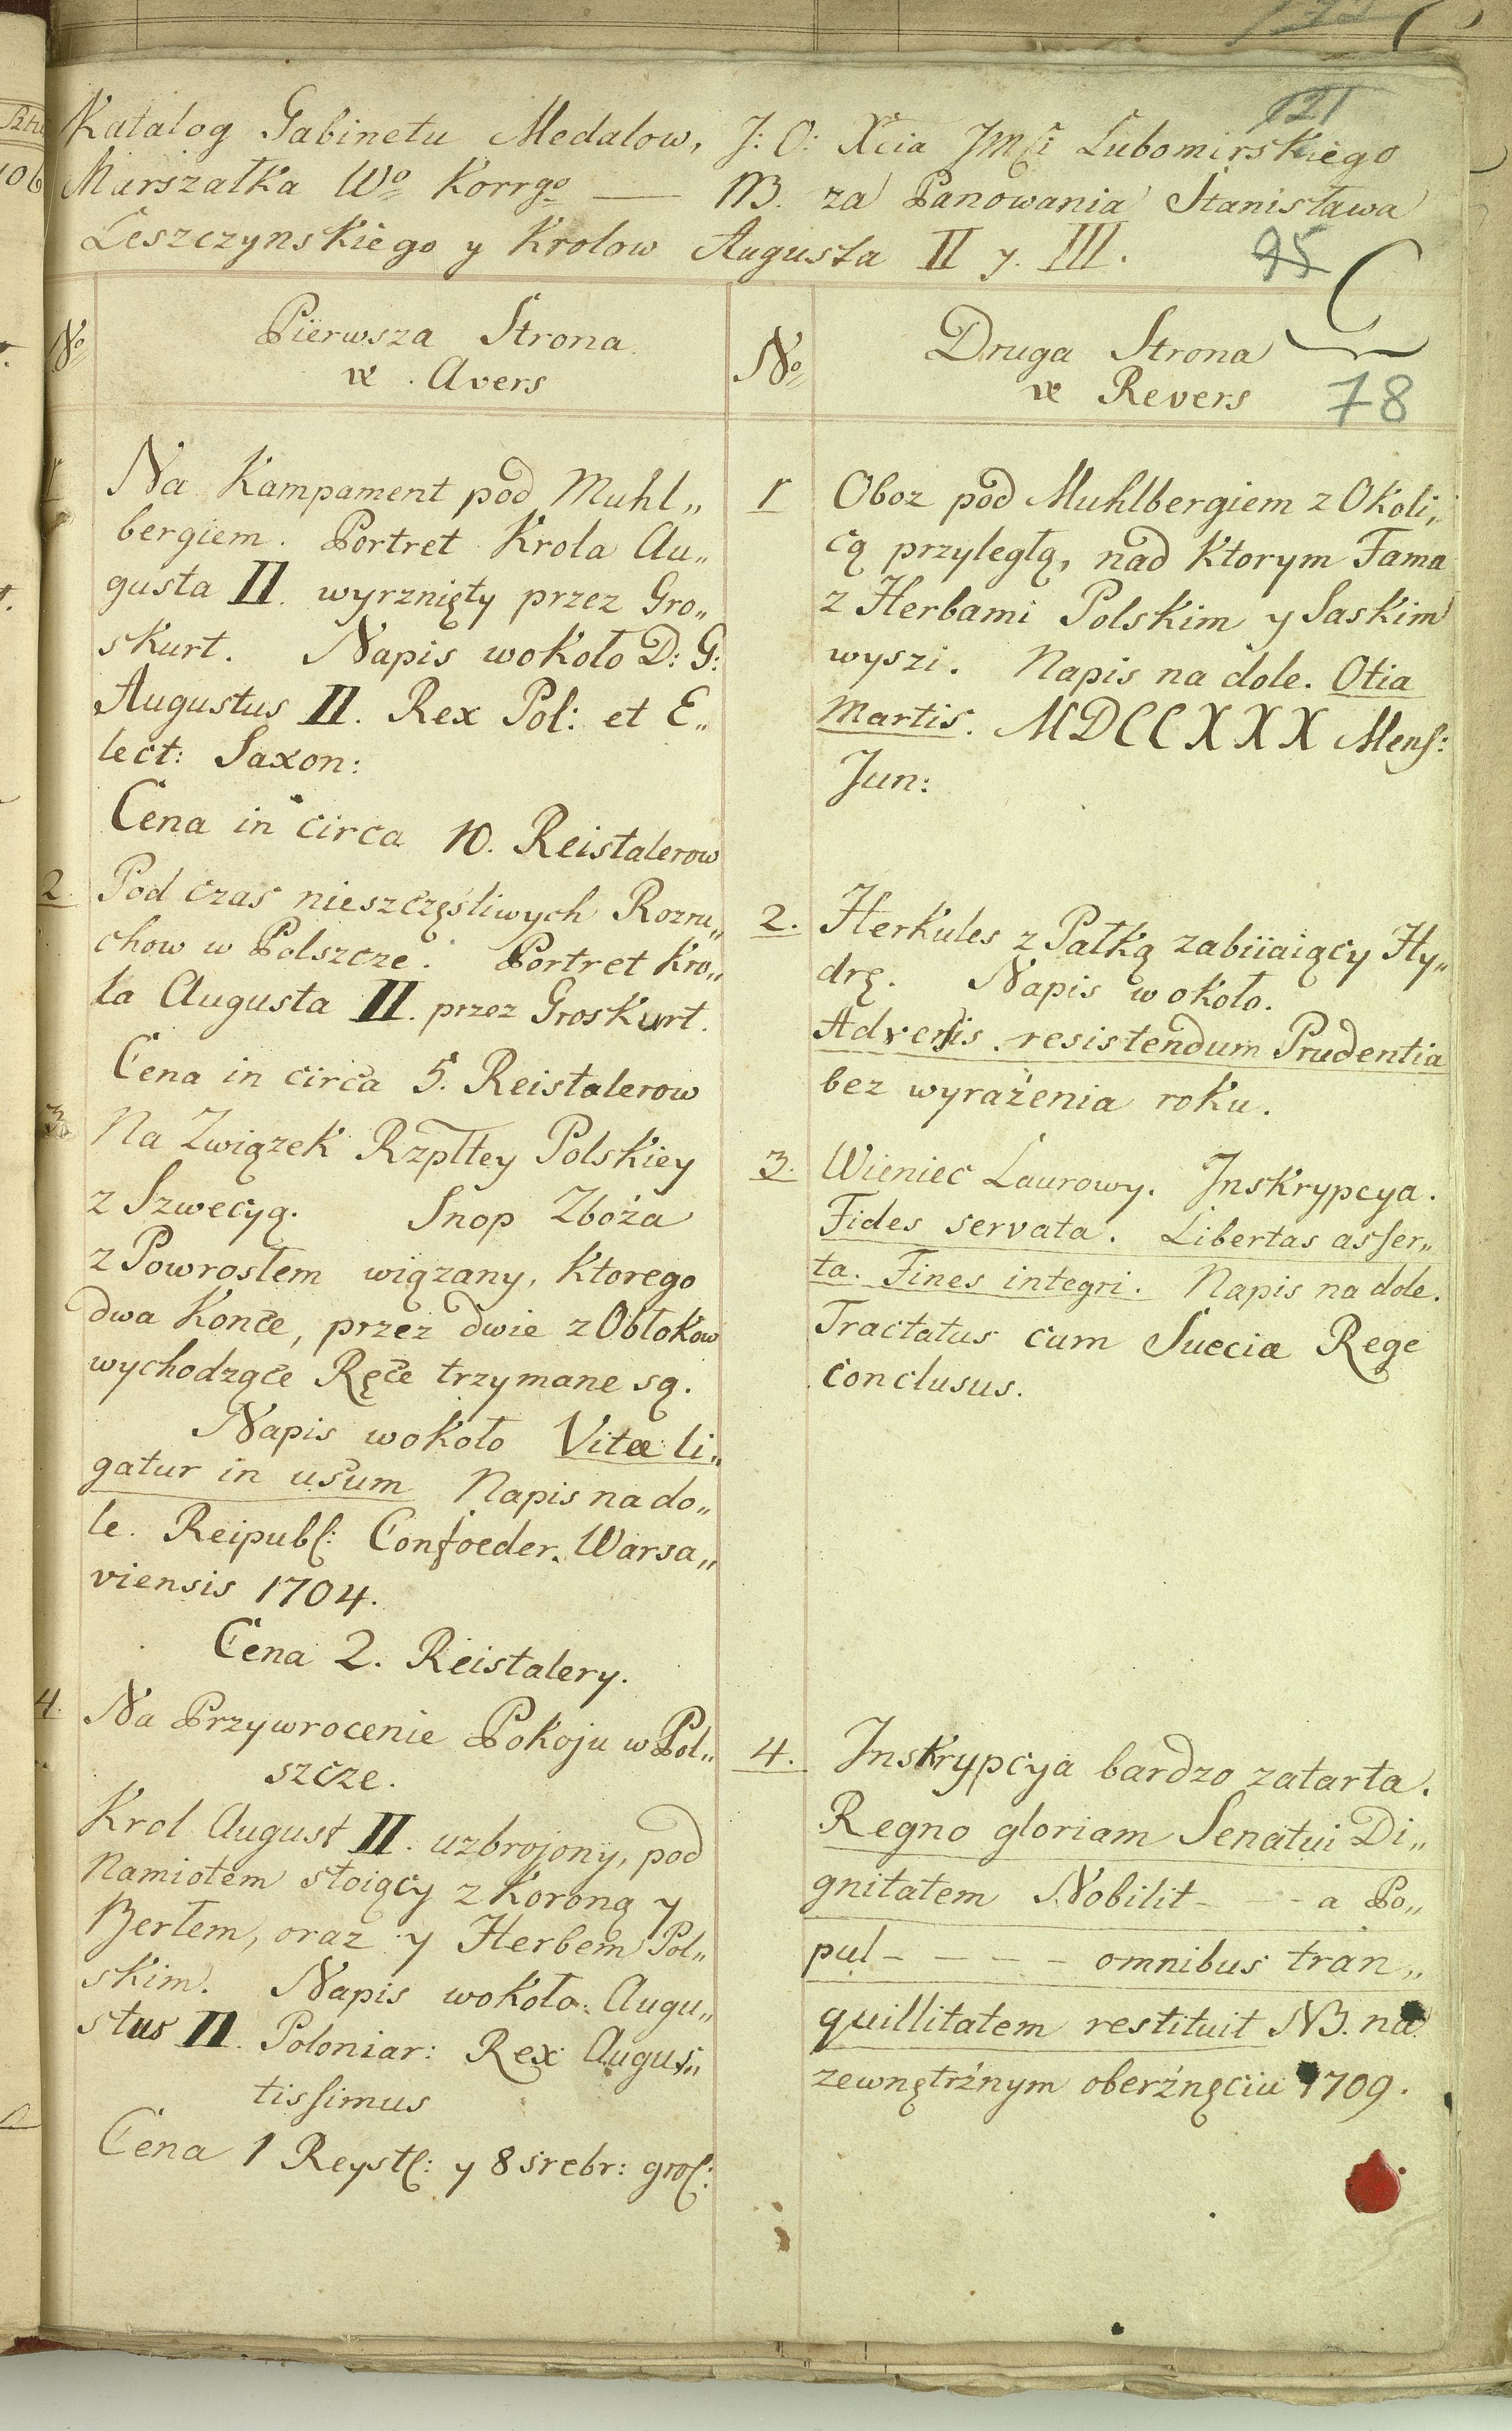 121
Katalog Gabinetu Medalow, J: O: Xcia JMci Lubomirskiego
Marszałka Wo Korrgo — NB. za Panowania Stanisława
Leszczynskiego y Krolow Augusta II y. III.
95
No
Pierwsza Strona
Avers
No
Druga Strona
Revers
78
1
Na Kampament pod Muhl„
bergiem. Portret Krola Au„
gusta II. wyrznięty przez Gro„
skurt. Napis wokoło D: G:
Augustus II. Rex Pol: et E„
lect: Saxon:
Cena in circa 10. Reistalerow
2.
Pod czas nieszczęśliwych Rozru„
chow w Polszcze. Portret Kro„
la Augusta II. przez Groskurt.
Cena in circa 5. Reistalerow
3.
Na Związek Rzpltey Polskiey
z Szwecyą. Snop Zboża
z Powrosłem wiązany, Ktorego
dwa Końce, przez dwie z Obłokow
wychodzące Ręce trzymane są.
Napis wokoło Vitæ li„
gatur in usum Napis na do„
le. Reipubl: Confoeder. Warsa„
viensis 1704.
Cena 2. Reistalery.
4.
Na Przywrocenie Pokoju w Pol„
szcze.
Krol August II. uzbrojony, pod
Namiotem stoiący z Koroną y
Berłem, oraz y Herbem Pol„
skim. Napis wokoło. Augu„
stus II. Poloniar: Rex Augus„
tissimus
Cena 1 Reystl: y 8 srebr: gros:
1
Oboz pod Muhlbergiem z Okoli„
cą przyległą, nad Ktorym Fama
z Herbami Polskim y Saskim
wyszi. Napis na dole. Otia
Martis. MDCCXXX Mens:
Jun:
2.
Herkules z Pałką zabiiaiący Hy„
drę. Napis wokoło.
Adversis resistendum Prudentia
bez wyrażenia roku.
3.
Wieniec Laurowy. Inskrypcya.
Fides servata. Libertas asser„
ta. Fines integri. Napis na dole.
Tractatus cum Sueciæ Rege
conclusus.
4.
Inskrypcya bardzo zatarta.
Regno gloriam Senatui Di„
gnitatem Nobilit- - - a Po„
pul- - - - omnibus tran„
quillitatem restituit NB. na
zewnętrżnym oberżnęciu 1709.